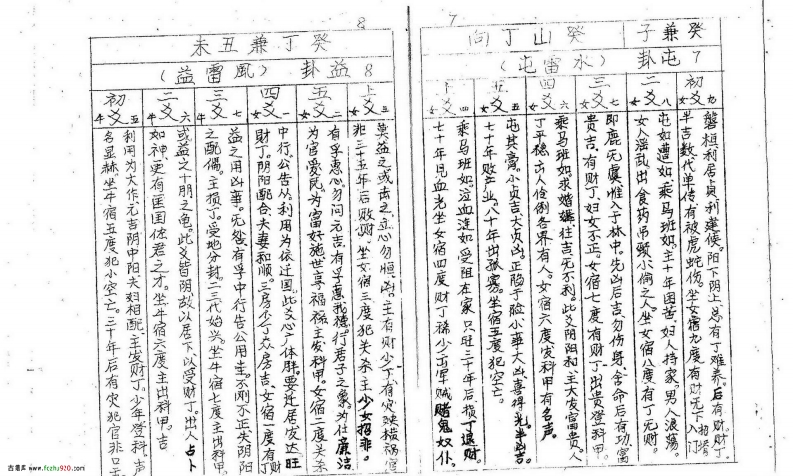 7
癸兼子 癸山丁向
7 屯卦（水雷屯）
初爻 女九
磐桓利居貞利建侯。阳下阴上总有丁难养。后有財丁
半吉数代单传有被虎蛇伤。坐女宿九度有財无下入门
二爻 女八
屯如邅如。乘马班如。主十年困苦妇人持家。男人浪荡。
女人淫乱出食药吊颈小偷之人。坐女宿八度有丁无财。
三爻 女七
即鹿无虞惟入于林中。先凶后吉勿伤身舍命后有功富
贵吉。有财丁妇女不正。女宿七度有財丁出贵登科。吉
四爻 女六
乘马班如求婚媾往吉无不利。此爻阴阳和。主大发富贵人
丁平穏出人伶俐各界有人。女宿六度发科甲有名声。
五爻 女五
屯其膏。小贞吉大贞凶。正陷于险小事大凶喜得光半凶吉。
七十年敗产业。八十年出孤寡。坐宿五度犯空亡。
上爻 女四
乘马班如。泣血涟如受阻在家。只旺三十年后。损丁退财。
七十年见血光坐女宿四度财丁禄少出军贼賭鬼奴仆。
8
癸丁兼丑未
8 益卦（風雷益）
上爻 女三
莫益之或击之。立心勿恒。凶。主有财少丁有灾殃横祸官
非三十五年后敗财。坐女宿三度犯关杀主少女招非。
五爻 女二
有孚惠心。勿问元吉。有孚惠我德。行君子之象。为仕廉洁
为官爱民。为富好施世享福禄。主发科甲。女宿二度关杀
四爻 女一
中行公告从利用为依迁国。此爻心广体胖。要近居发达旺
财丁。阴阳配合夫妻和顺。三房少丁众房吉。女宿一度有财
三爻 牛七
益之用凶事。无怨有孚中行告公用圭。不刚不正失阴阳
之配偶。主损丁。受地分封。二三代始兴。坐牛宿七度主出科甲。
二爻 牛六
或益之十朋之龟。此爻皆阴故以居下以受财丁。出人占卜
如神。更有匡国佐君之才。坐牛宿六度主出科甲。吉
初爻 牛五
利用为大作元吉阴中阳夫妇相配。主发财丁。少年登科。声
名显赫坐牛宿五度。犯小空亡。三十年后有灾犯官非口舌
古易库 www.fczhu920.com